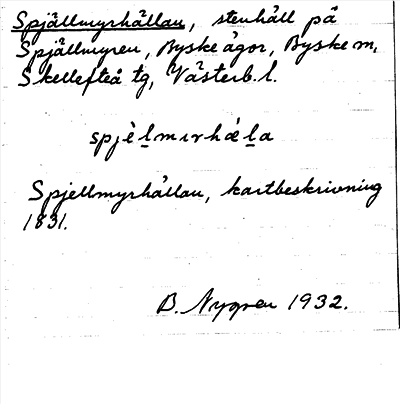 Spjällmyrhällan, stenhäll på
Spjällmyren, Byske ägor, Byske sn,
Skellefteå tg, Västerb. l.
spjèḻmırhǽḻa
Spjellmyrhällan, kartbeskrivning
1831.
B. Nygren 1932.